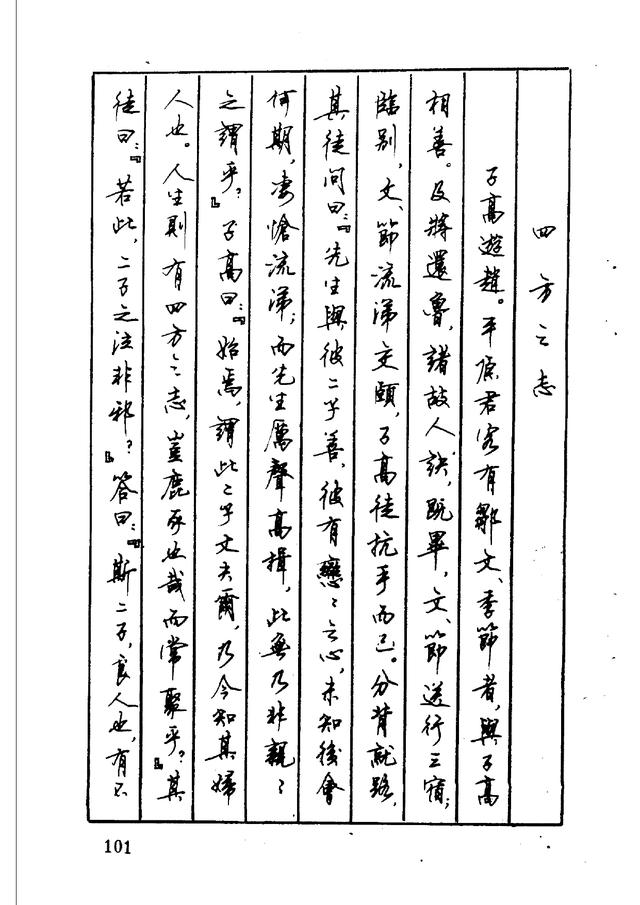 四方之志
子高遊趙。平原君客有鄒文、季節者,與子高
相善。及將還魯,諸故人訣,既畢,文、節送行三宿;
臨別,文、節流涕交頤,子高徒抗手而已。分背就路,
其徒問曰:『先生與彼二子善,彼有戀〻之心,未知後會
何期,悽愴流涕;而先生厲聲高揖,此無乃非親〻
之謂乎?』子高曰:『始焉,謂此二子丈夫爾,乃今知其婦
人也。人生則有四方之志,豈鹿豕也哉而常聚乎?』其
徒曰:『若此,二子之泣非邪?』答曰:『斯二子,良人也,有不
101